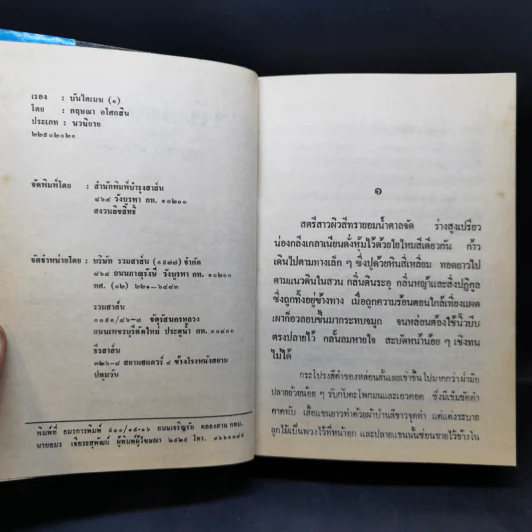 เรื่อง : บันไดเมฆ (๑)
โดย : กฤษณา อโศกสิน
ประเภท : นวนิยาย
จัดพิมพ์โดย : สำนักพิมพ์บำรุงสาส์น
๘๖๔ วังบูรพา กท. ๑๐๒๐๐
สงวนลิขสิทธิ์
จัดจำหน่ายโดย : บริษัท รวมสาส์น (๑๙๗๗) จำกัด
๘๖๔ ถนนภาณุรังษี วังบูรพา กท. ๑๐๒๐๐
ทศ. (๐๒) ๒๒๑-๖๔๘๓
รวมสาส์น
จัตุรัสนครหลวง
ถนนเพชรบุรีตัดใหม่ ประตูน้ำ กท. ๑๐๔๐๐
ธีรสาส์น
๓๒๖-๘ สยามสแควร์ ๔ ข้างโรงหนังสยาม
ปทุมวัน
พิมพ์ที่ อมรการพิมพ์ ถนนเจริญรัถ คลองสาน กทม.
ผู้พิมพ์ผู้โฆษณา ๒๕๒๕ โทร.
๑
สตรีสาวผิวสีทรายอมน้ำตาลจัด ร่างสูงเปรียว
น่องกลึงเกลาเนียนดั่งหุ้มไว้ด้วยใยไหมสีเดียวกัน ก้าว
เดินไปตามทางเล็ก ๆ ซึ่งปูด้วยหินสี่เหลี่ยม ทอดยาวไป
ตามแนวดินในสวน กลิ่นดินระอุ กลิ่นหญ้าและสิ่งปฏิกูล
ซึ่งถูกทิ้งอยู่ข้างทาง เมื่อถูกความร้อนตอนใกล้เที่ยงแผด
เผาก็อวลอบขึ้นมากระทบจมูก จนหล่อนต้องใช้นิ้วบีบ
ตรงปลายไว้ กลั้นลมหายใจ สะบัดหน้าน้อย ๆ เชิงทน
ไม่ได้
กระโปรงสีดำของหล่อนสั้นเลยเข่าขึ้นไปมากกว่าฝ่ามือ
ปลายย้วยน้อย ๆ ขับกับตะโพกมนและเอวคอด ซึ่งมีเข็มขัดดำ
คาดทับ เสื้อแขนยาวทำด้วยผ้าป่านสีขาวจุดดำ แต่แต่งระบาย
ลูกไม้เป็นพวงไว้ที่หน้าอก และปลายแขนนั้นซ่อนชายไว้ข้างใน